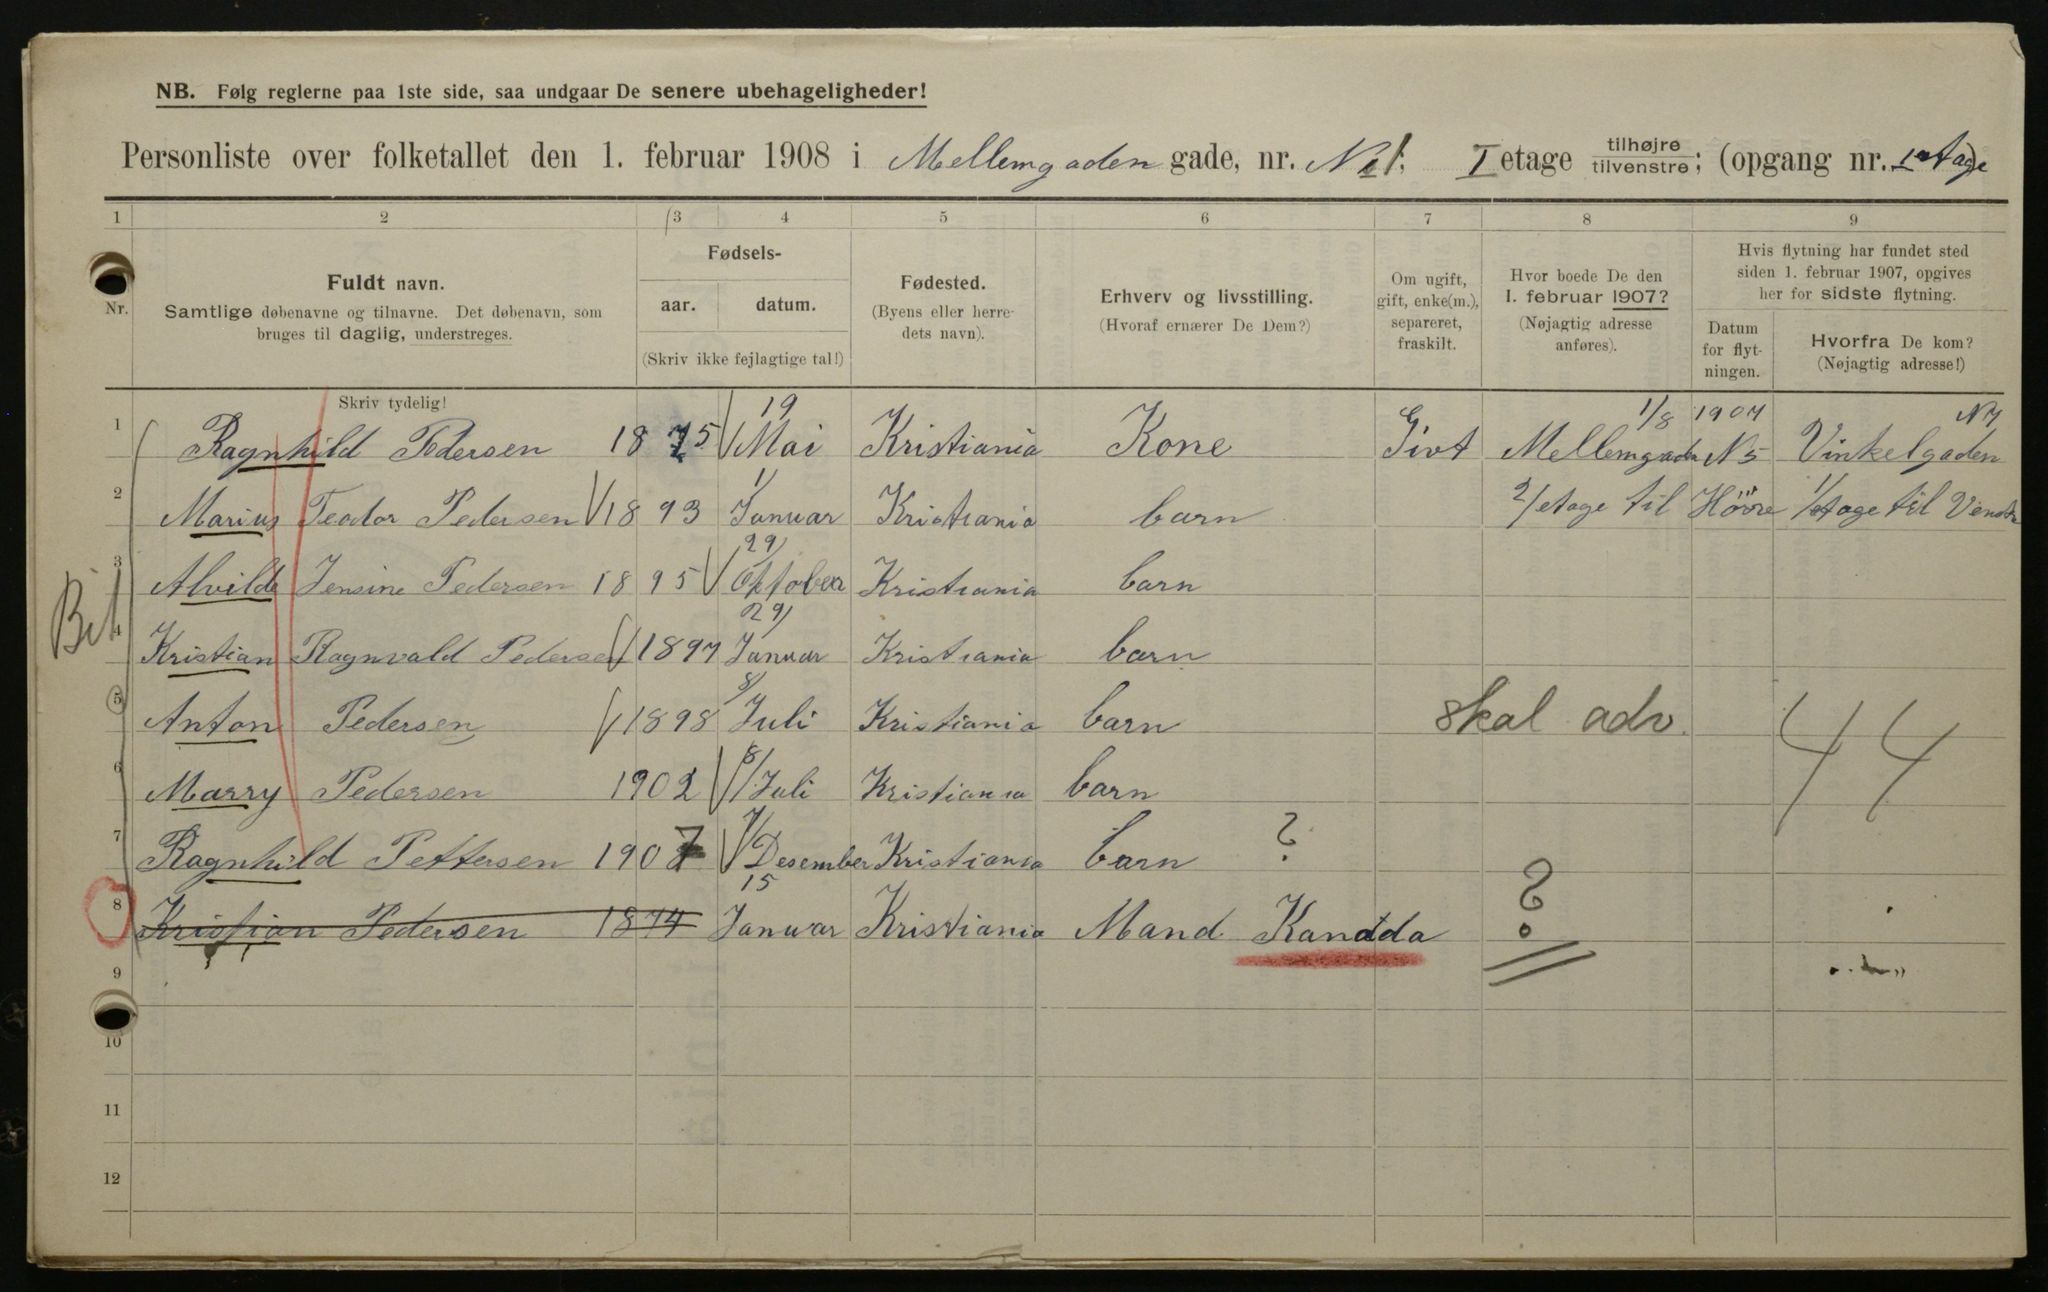 NB. Følg reglerne paa 1ste side, saa undgaar De senere ubehageligheder!
Personliste over folketallet den 1. februar 1908 i Mellemgaden gade, nr. No 1; I etage tilhøjre tilvenstre; (opgang nr. 1 etage)
1 2 3 4 5 6 7 8 9
Nr.
Fuldt navn.
Samtlige døbenavne og tilnavne. Det døbenavn, som
bruges til daglig, understreges.
Skriv tydelig!
Fødsels-
aar. datum.
(Skriv ikke fejlagtige tal!)
Fødested.
(Byens eller herre-
dets navn).
Erhverv og livsstilling.
(Hvoraf ernærer De Dem?)
Om ugift,
gift, enke(m.),
separeret,
fraskilt.
Hvor boede De den
1. februar 1907?
(Nøjagtig adresse
anføres).
Hvis flytning har fundet sted
siden 1. februar 1907, opgives
her for sidste flytning.
Datum
for flyt-
ningen.
Hvorfra De kom?
(Nøjagtig adresse!)
19 1/8 1907 N 7
1 Ragnhild Pedersen 1875 Mai Kristiania Kone Givt Mellemgaden N 5 Vinkelgaden
2 Marius Teodor Pedersen 1893 1/ Januar Kristiania barn 2/etage til Höire 1/etage til Venstr
3 Alvilde Jensine Pedersen 1895 29/ Oktober Kristiania barn
Bit
4 Kristian Ragnvald Pedersen 1897 29/ Januar Kristiania barn
5 Anton Pedersen 1898 8/ Juli Kristiania barn skal adv. 44
6 Marry Pedersen 1902 8/ Juli Kristiania barn
7 Ragnhild Pettersen 1907 1/ Desember Kristiania barn ?
8 Kristian Pedersen 1874 15 Januar Kristiania Mand Kanadda ?
9
10
11
12